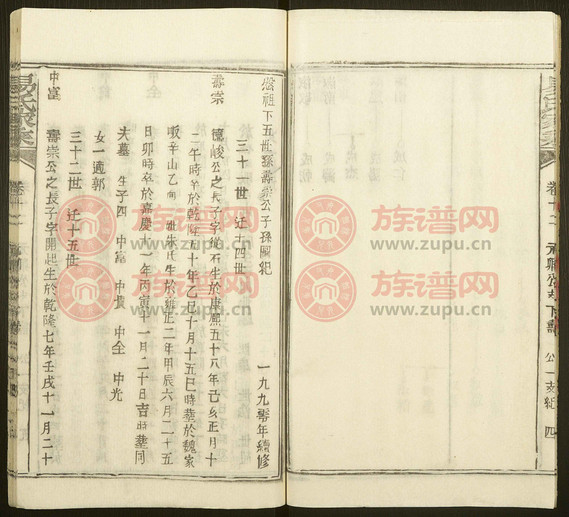 祖下五世孫壽崇公子孫圖紀
一九九零年續修
三十一世 迁十四世
壽崇 德峻公之長子字從石生於康熙五十八年己亥正月十
二午時卒於乾隆五十年乙巳十月十五巳時葬於魏家
坂辛山乙向 妣朱氏生於雍正二年甲辰六月二十五
日卯時卒於嘉慶十一年丙寅十一月二十日吉時葬同
夫墓 生子四 中富 中貴 中全 中光
女一適郭
三十二世 迁十五世
中富 壽崇公之長子字開起生於乾隆七年壬戌十一月二十
易氏家乘
公一支紀 四
族谱网
www.zupu.cn
族谱网
www.zupu.cn
族谱网
www.zupu.cn
族谱网
www.zupu.cn